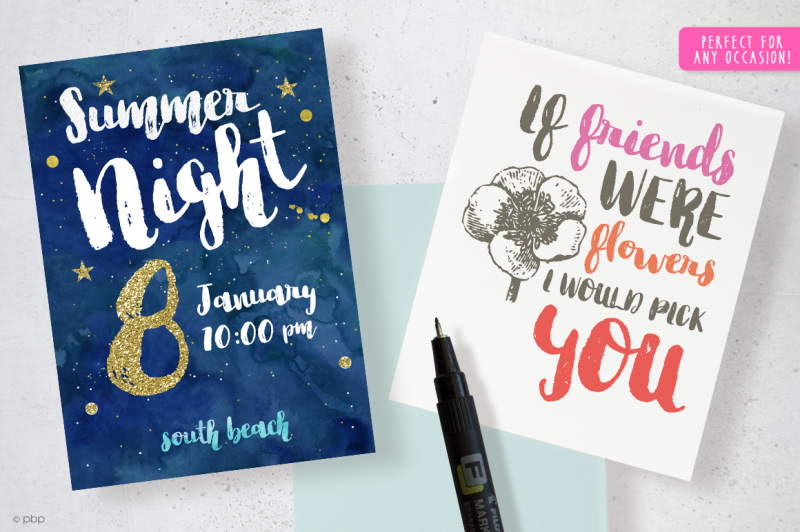 PERFECT FOR
ANY OCCASION!
Summer
Night
8
January
10:00 pm
south beach
If friends
WERE
flowers
I WOULD PICK
YOU
& PILOT
MARK
© pbp